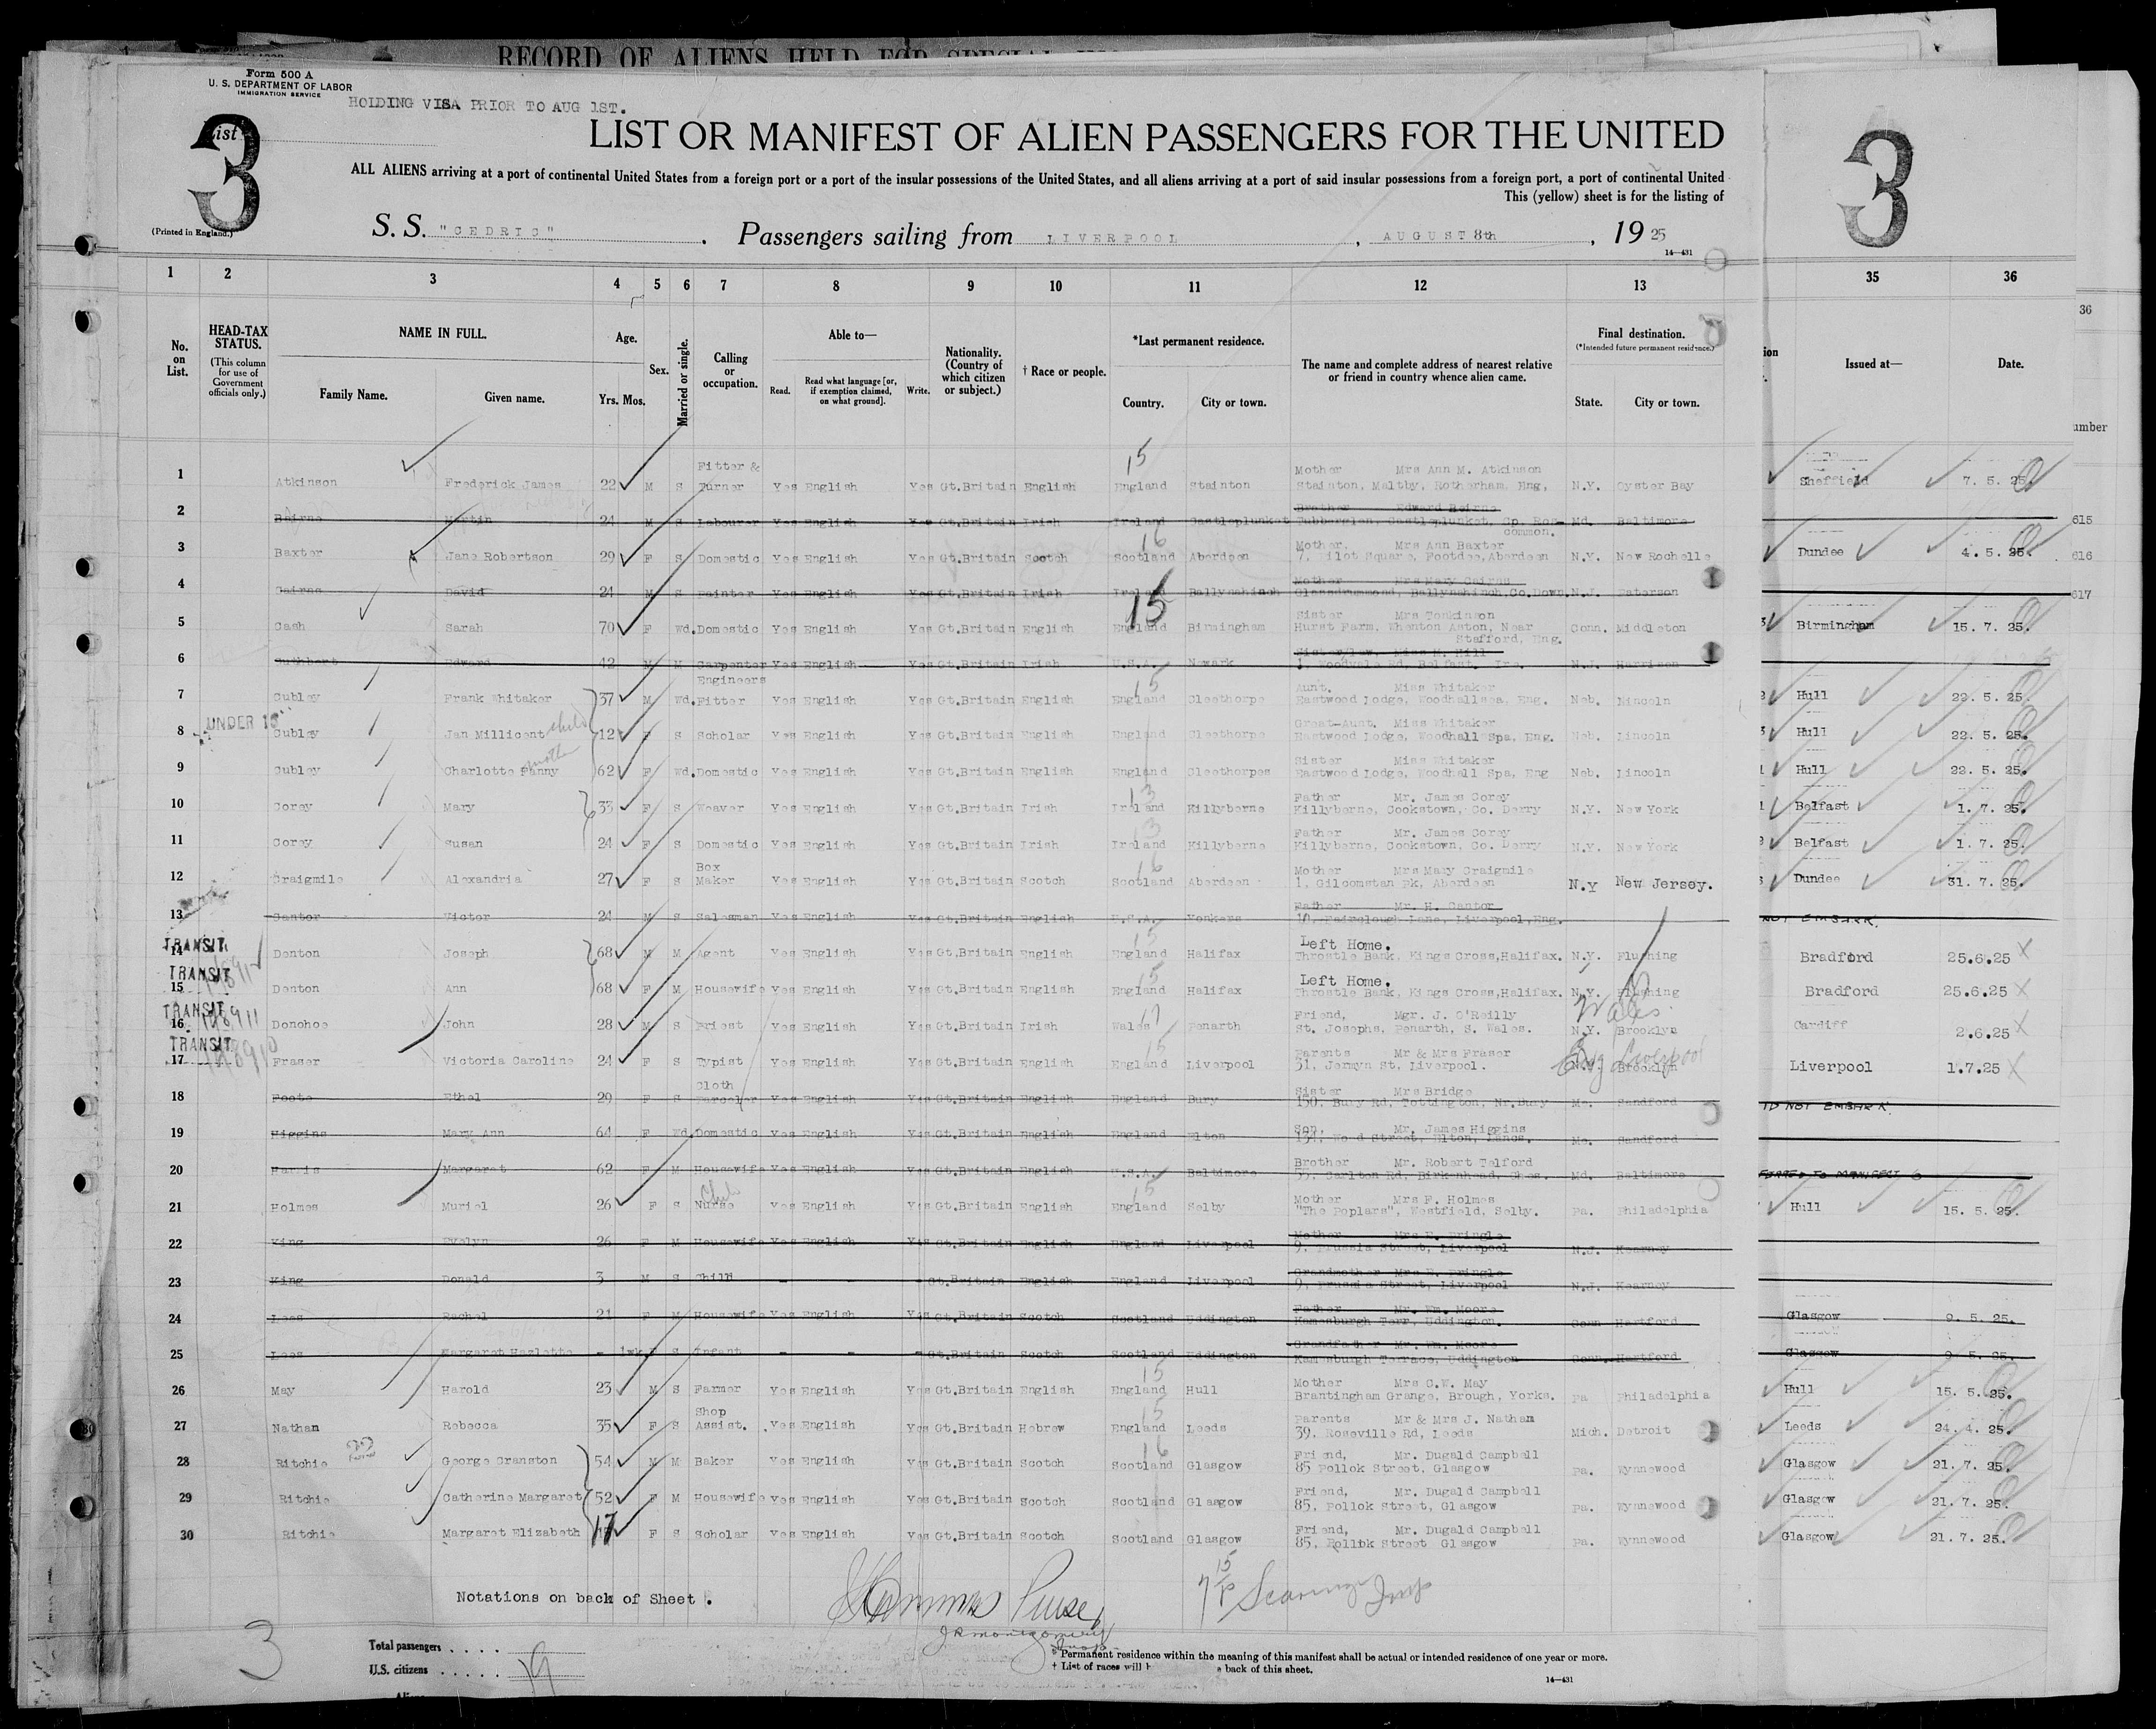 RECORD OF ALIENS HELD FOR SPECIAL
Form 500 A
U. S. DEPARTMENT OF LABOR
IMMIGRATION SERVICE
HOLDING VISA PRIOR TO AUG 1ST.
List
3
3
LIST OR MANIFEST OF ALIEN PASSENGERS FOR THE UNITED
ALL ALIENS arriving at a port of continental United States from a foreign port or a port of the insular possessions of the United States, and all aliens arriving at a port of said insular possessions from a foreign port, a port of continental United
This (yellow) sheet is for the listing of
(Printed in England.)
S. S. "CEDRIC" . Passengers sailing from LIVERPOOL , AUGUST 8th , 19 25
14—431
1 2 3 4 5 6 7 8 9 10 11 12 13 35 36
36
No. on List.
HEAD-TAX STATUS.
(This column for use of Government officials only.)
NAME IN FULL.
Family Name. Given name.
Age.
Yrs. Mos.
Sex.
Married or single.
Calling or occupation.
Able to—
Read. Read what language [or, if exemption claimed, on what ground]. Write.
Nationality. (Country of which citizen or subject.)
† Race or people.
*Last permanent residence.
Country. City or town.
The name and complete address of nearest relative or friend in country whence alien came.
Final destination.
(*Intended future permanent residence.)
State. City or town.
Issued at— Date.
umber
1 Atkinson Frederick James 22 M S Fitter & Turner Yes English Yes Gt.Britain English England 15 Stainton Mother Mrs Ann M. Atkinson Stainton, Maltby, Rotherham, Eng, N.Y. Oyster Bay Sheffield 7. 5. 25.
2 Beirne Martin 24 M S Labourer Yes English Yes Gt.Britain Irish Ireland Castleplunket Brother Edward Beirne Castleplunket, Co. Ros- common. Md. Baltimore 615
3 Baxter Jane Robertson 29 F S Domestic Yes English Yes Gt.Britain Scotch Scotland 16 Aberdeen Mother. Mrs Ann Baxter 7, ilot Square, Footdee, Aberdeen N.Y. New Rochelle Dundee 4. 5. 25. 616
4 Cairns David 24 M S Painter Yes English Yes Gt.Britain Irish Ireland Ballynahinch Mother Mrs Mary Cairns Ballynahinch, Co.Down. N.J. Paterson 617
5 Cash Sarah 70 F Wd. Domestic Yes English Yes Gt.Britain English England 15 Birmingham Sister Mrs Tonkinson Hurst Farm, Whenton Aston, Near Stafford, Eng. Conn. Middleton Birmingham 15. 7. 25.
6 Cuthbert Edward 42 M M Carpenter Yes English Yes Gt.Britain Irish U.S.A. Newark Sister/law, Miss M. Hill 1, Woodvale Rd, Belfast, Ire. N.J. Harrison
7 Cubley Frank Whitaker 37 M Wd. Engineers Fitter Yes English Yes Gt.Britain English England 15 Cleethorpe Aunt. Miss Whitaker Eastwood Lodge, Woodhallspa, Eng. Neb. Lincoln Hull 22. 5. 25.
UNDER 16
8 Cubley Jan Millicent child 12 F S Scholar Yes English Yes Gt.Britain English England Cleethorpe Great-Aunt, Miss Whitaker Eastwood Lodge, Woodhall Spa, Eng. Neb. Lincoln Hull 22. 5. 25.
9 Cubley Charlotte Fanny mother 62 F Wd. Domestic Yes English Yes Gt.Britain English England Cleethorpes Sister Miss Whitaker Eastwood Lodge, Woodhall Spa, Eng Neb. Lincoln Hull 22. 5. 25.
10 Corey Mary 33 F S Weaver Yes English Yes Gt.Britain Irish Ireland 13 Killyberne Father Mr. James Corey Killyberne, Cookstown, Co. Derry N.Y. New York Belfast 1. 7. 25.
11 Corey Susan 24 F S Domestic Yes English Yes Gt.Britain Irish Ireland 13 Killyberne Father Mr. James Corey Killyberne, Cookstown, Co. Derry N.Y. New York Belfast 1. 7. 25.
12 Craigmile Alexandria 27 F S Box Maker Yes English Yes Gt.Britain Scotch Scotland 16 Aberdeen Mother Mrs Mary Craigmile 1, Gilcomstan Pk, Aberdeen N.Y New Jersey. Dundee 31. 7. 25.
13 Cantor Victor 24 M S Salesman Yes English Yes Gt.Britain English U.S.A. Yonkers Father Mr. H. Cantor 10, Fairclough Lane, Liverpool, Eng. NOT EMBARK.
TRANSIT
14 Denton Joseph 68 M M Agent Yes English Yes Gt.Britain English England 15 Halifax Left Home. Throstle Bank, Kings Cross, Halifax. N.Y. Flushing Bradford 25.6.25
TRANSIT
15 Denton Ann 68 F M Housewife Yes English Yes Gt.Britain English England 15 Halifax Left Home. Throstle Bank, Kings Cross, Halifax. N.Y. Flushing Bradford 25.6.25
TRANSIT
16 Donohoe John 28 M S Priest Yes English Yes Gt.Britain Irish Wales 17 Penarth Friend, Mgr. J. O'Reilly St. Josephs, Penarth, S. Wales. N.Y. Brooklyn Wales Cardiff 2.6.25
TRANSIT
17 Fraser Victoria Caroline 24 F S Typist Yes English Yes Gt.Britain English England 15 Liverpool Parents Mr & Mrs Fraser 31, Jermyn St, Liverpool. N.Y. Brooklyn Eng Liverpool Liverpool 1.7.25
18 Foote Ethel 29 F S Cloth Parceler Yes English Yes Gt.Britain English England Bury Sister Mrs Bridge 150, Bury Rd, Tottington, Nr.Bury Me. Sandford ID NOT EMBARK.
19 Higgins Mary Ann 64 F Wd. Domestic Yes English Yes Gt.Britain English England Elton Son, Mr. James Higgins 134, Wood Street, Elton, Lancs. Me. Sandford
20 Harris Margaret 62 F M Housewife Yes English Yes Gt.Britain English U.S.A. Baltimore Brother Mr. Robert Telford 55, Carlton Rd, Birkenhead, Ches. Md. Baltimore TO MANIFEST 6
21 Holmes Muriel 26 F S Child Nurse Yes English Yes Gt.Britain English England 15 Selby Mother Mrs F. Holmes "The Poplars", Westfield, Selby. Pa. Philadelphia Hull 15. 5. 25.
22 King Evelyn 26 F M Housewife Yes English Yes Gt.Britain English England Liverpool Mother Mrs E. Pringle 9, Prussia Street, Liverpool N.J. Kearney
23 King Donald 3 M S Child - - - Gt.Britain English England Liverpool Grandmother Mrs E. Pringle 9, Prussia Street, Liverpool N.J. Kearney
24 Lees Rachel 21 F M Housewife Yes English Yes Gt.Britain Scotch Scotland Uddington Father Mr. Wm. Moore Kamesburgh Terr, Uddington. Conn Hartford Glasgow 9. 5. 25.
25 Lees Margaret Hazlette - 1wk F S Infant - - - Gt.Britain Scotch Scotland Uddington Grandfather Mr. Wm. Moore Kamesburgh Terrace, Uddington Conn. Hartford Glasgow 9. 5. 25.
26 May Harold 23 M S Farmer Yes English Yes Gt.Britain English England 15 Hull Mother Mrs C.W. May Brantingham Grange, Brough, Yorks. Pa Philadelphia Hull 15. 5. 25.
27 Nathan Rebecca 35 F S Shop Assist. Yes English Yes Gt.Britain Hebrew England 15 Leeds Parents Mr & Mrs J. Nathan 39, Roseville Rd, Leeds Mich. Detroit Leeds 24. 4. 25.
28 Ritchie George Cranston 54 M M Baker Yes English Yes Gt.Britain Scotch Scotland 16 Glasgow Friend, Mr. Dugald Campbell 85 Pollok Street, Glasgow Pa. Wynnewood Glasgow 21. 7. 25.
29 Ritchie Catherine Margaret 52 F M Housewife Yes English Yes Gt.Britain Scotch Scotland Glasgow Friend, Mr. Dugald Campbell 85, Pollok Street, Glasgow Pa. Wynnewood Glasgow 21. 7. 25.
30 Ritchie Margaret Elizabeth 17 F S Scholar Yes English Yes Gt.Britain Scotch Scotland Glasgow Friend, Mr. Dugald Campbell 85, Pollok Street Glasgow Pa. Wynnewood Glasgow 21. 7. 25.
Notations on back of Sheet .
Purser
3
Total passengers . . . .
U.S. citizens . . . . . 19
* Permanent residence within the meaning of this manifest shall be actual or intended residence of one year or more.
† List of races will back of this sheet.
14—431